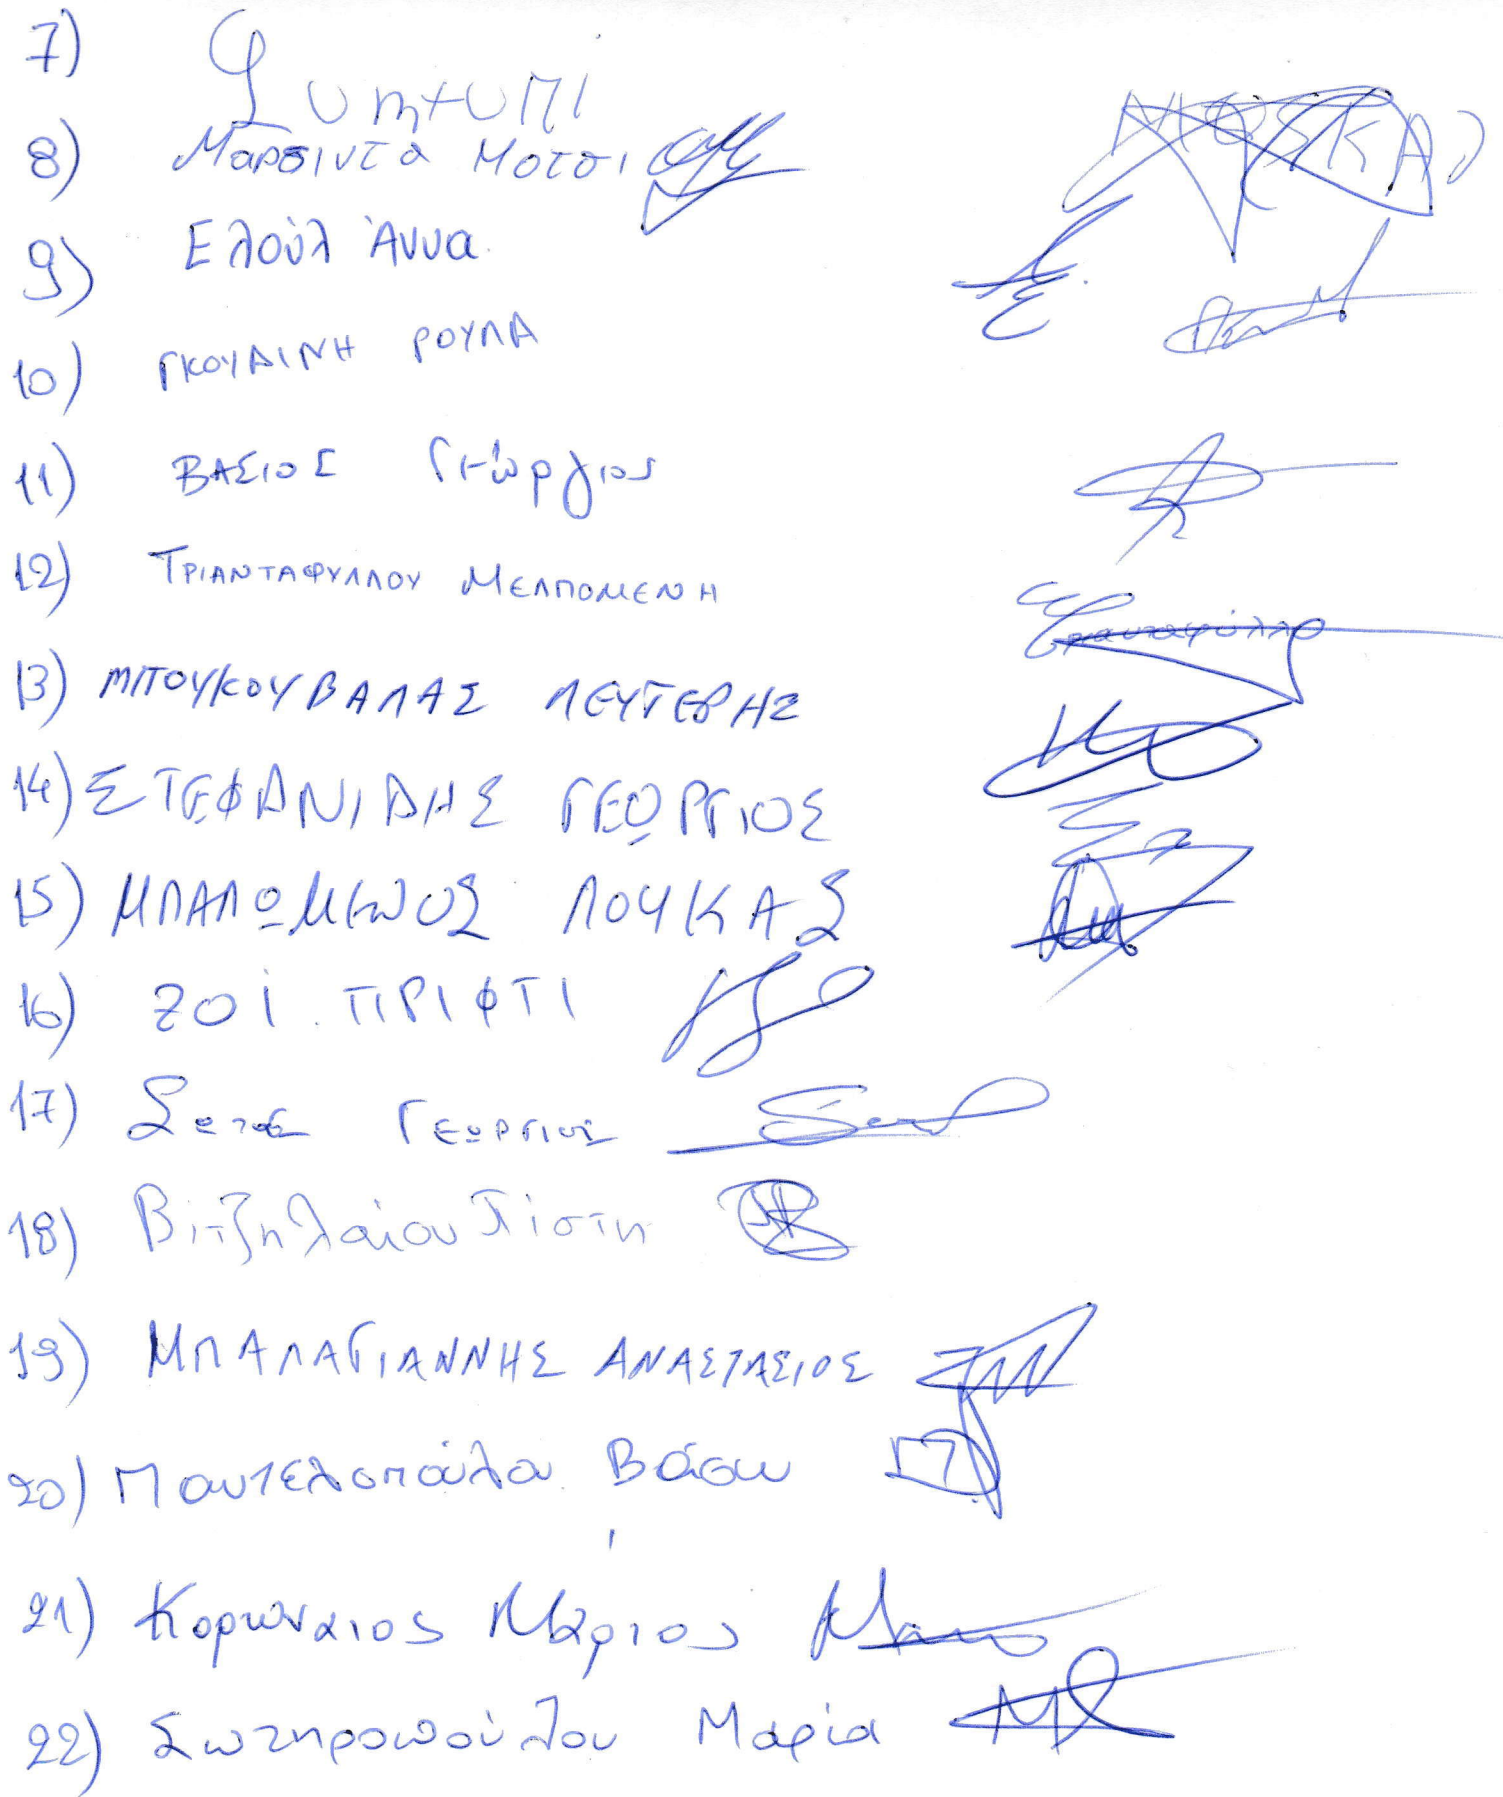 7)
8) Μαρσιντα Μοτσι
9) Ελούλ Άννα
10) ΓΚΟΥΔΙΝΗ ΡΟΥΛΑ
11) ΒΑΣΙΟΣ Γεώργιος
12) ΤΡΙΑΝΤΑΦΥΛΛΟΥ ΜΕΛΠΟΜΕΝΗ
13) ΜΠΟΥΚΟΥΒΑΛΑΣ ΛΕΥΤΕΡΗΣ
14) ΣΤΕΦΑΝΙΔΗΣ ΓΕΩΡΓΙΟΣ
15) ΜΠΑΛΩΜΕΝΟΣ ΛΟΥΚΑΣ
16) ΖΟΙ ΠΡΙΦΤΙ
17) Σωτος ΓΕΩΡΓΙΟΣ
18) Βιτζηλαίου Πίστη
19) ΜΠΑΛΑΓΙΑΝΝΗΣ ΑΝΑΣΤΑΣΙΟΣ
20) Παντελοπούλου Βάσω
21) Κορωναιος Μάριος
22) Σωτηροπούλου Μαρία